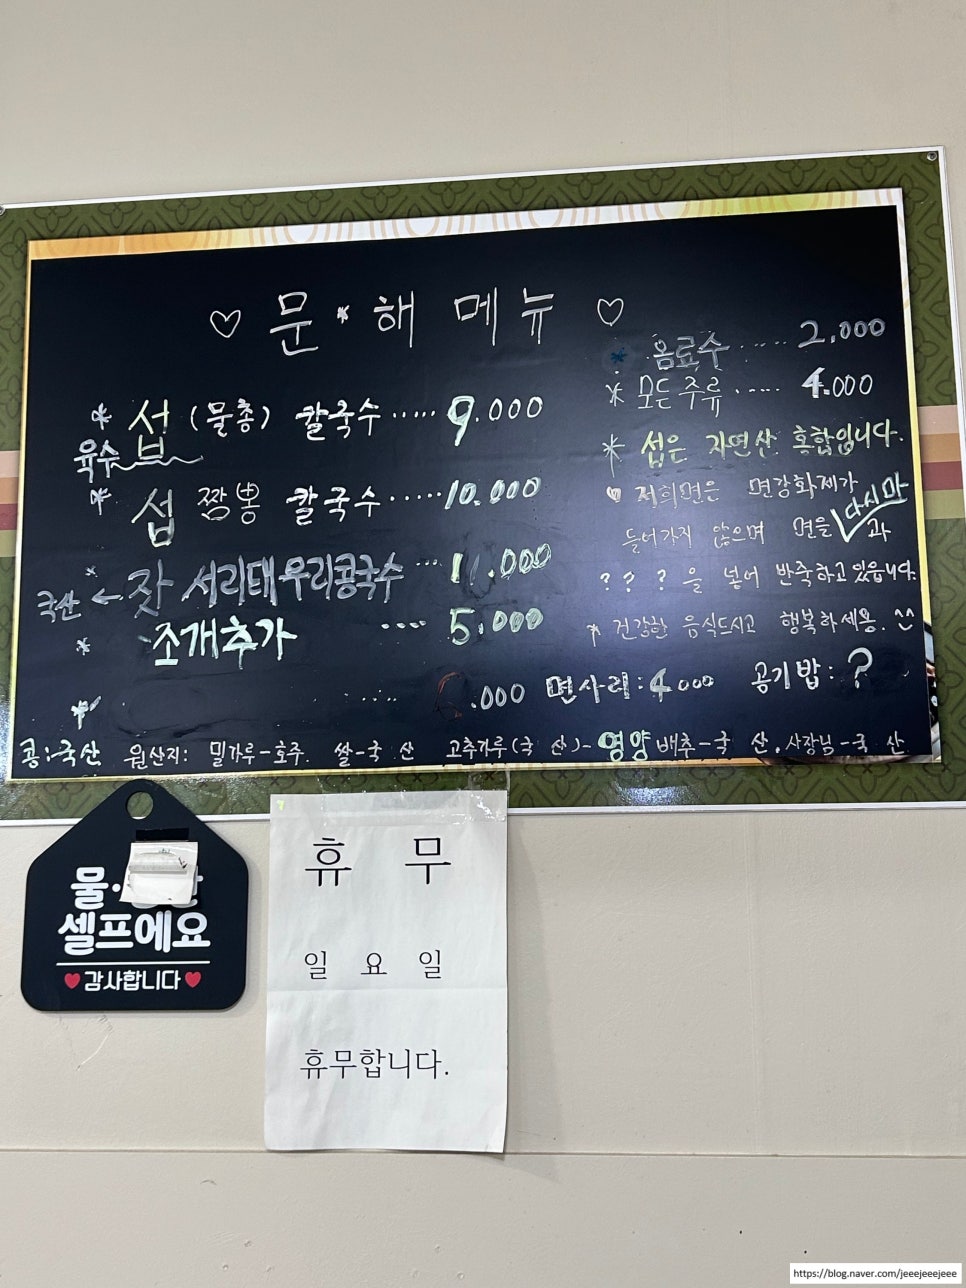 ♡ 문 * 해 메뉴 ♡
* 섭 (물총) 칼국수 ····· 9.000
육수
* 섭 짬뽕 칼국수 ····· 10.000
* 잣 서리태우리콩국수 ··· 11.000
국산 ←
* 조개추가 ···· 5.000
* 음료수 ····· 2,000
* 모든주류 ····· 4.000
* 섭은 자연산 홍합입니다.
♥ 저희면은 면강화제가
들어가지 않으며 면을 다시마과
? ? ? 을 넣어 반죽하고있읍니다.
* 건강한 음식드시고 행복하세용. ^^
····· .000 면사리:4000 공기밥:?
콩:국산 원산지: 밀가루-호주. 쌀-국 산 고추가루(국 산)-영양 배추-국 산. 사장님-국 산
물·
셀프에요
♥감사합니다♥
휴 무
일 요 일
휴무합니다.
https://blog.naver.com/jeeejeeejeee